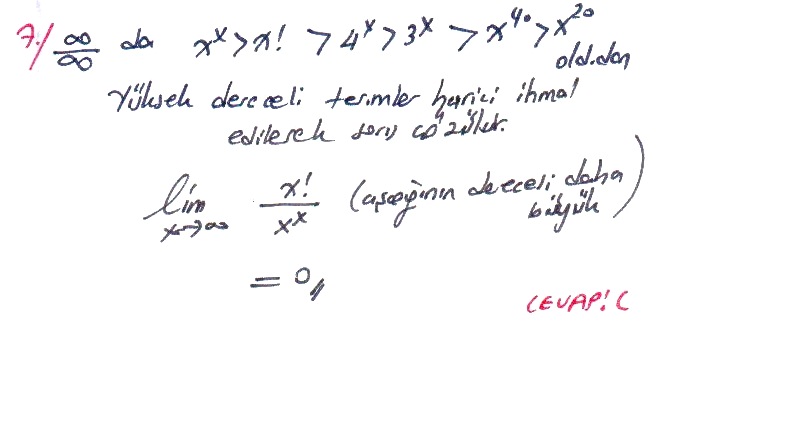 7./ ∞/∞ da x^x > x! > 4^x > 3^x > x^40 > x^20 old.dan
Yüksek dereceli terimler harici ihmal
edilerek soru çözülür.
lim x→∞ x!/x^x (aşağının derecesi daha büyük)
= 0,,
CEVAP: C